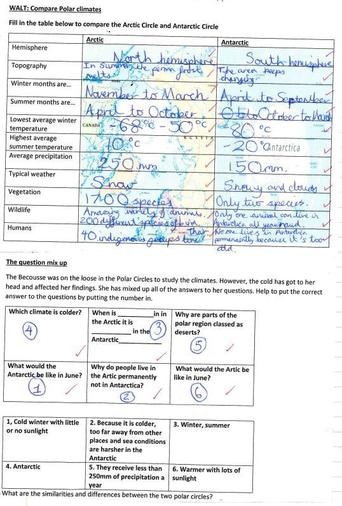 WALT: Compare Polar climates
Fill in the table below to compare the Arctic Circle and Antarctic Circle
Arctic Antarctic
Hemisphere North hemisphere South hemisphere
Topography In Summer the perma frost melts The area keeps changing
Winter months are... November to March April to September
Summer months are... April to October October to March
Lowest average winter temperature CANADA -68°C -50°C -80°C
Highest average summer temperature 10°C -20° Antarctica
Average precipitation 250mm 150mm.
Typical weather Snow Snowy and clouds
Vegetation 1700 species Only two species.
Wildlife Amazing variety of animals. 200 different species of Only one animal can live in Antarctica all year round.
Humans 40 indigenous groups that None live in Antarctica permanently because it's too cold.
The question mix up
The Becousse was on the loose in the Polar Circles to study the climates. However, the cold has got to her
head and affected her findings. She has mixed up all of the answers to her questions. Help to put the correct
answer to the questions by putting the number in.
Which climate is colder?
4
When is ______ in in
the Arctic it is
______ in the
Antarctic______
3
Why are parts of the
polar region classed as
deserts?
5
What would the
Antarctic be like in June?
1
Why do people live in
the Arctic permanently
not in Antarctica?
2
What would the Artic be
like in June?
6
1, Cold winter with little
or no sunlight
2. Because it is colder,
too far away from other
places and sea conditions
are harsher in the
Antarctic
3. Winter, summer
4. Antarctic
5. They receive less than
250mm of precipitation a
year
6. Warmer with lots of
sunlight
What are the similarities and differences between the two polar circles?